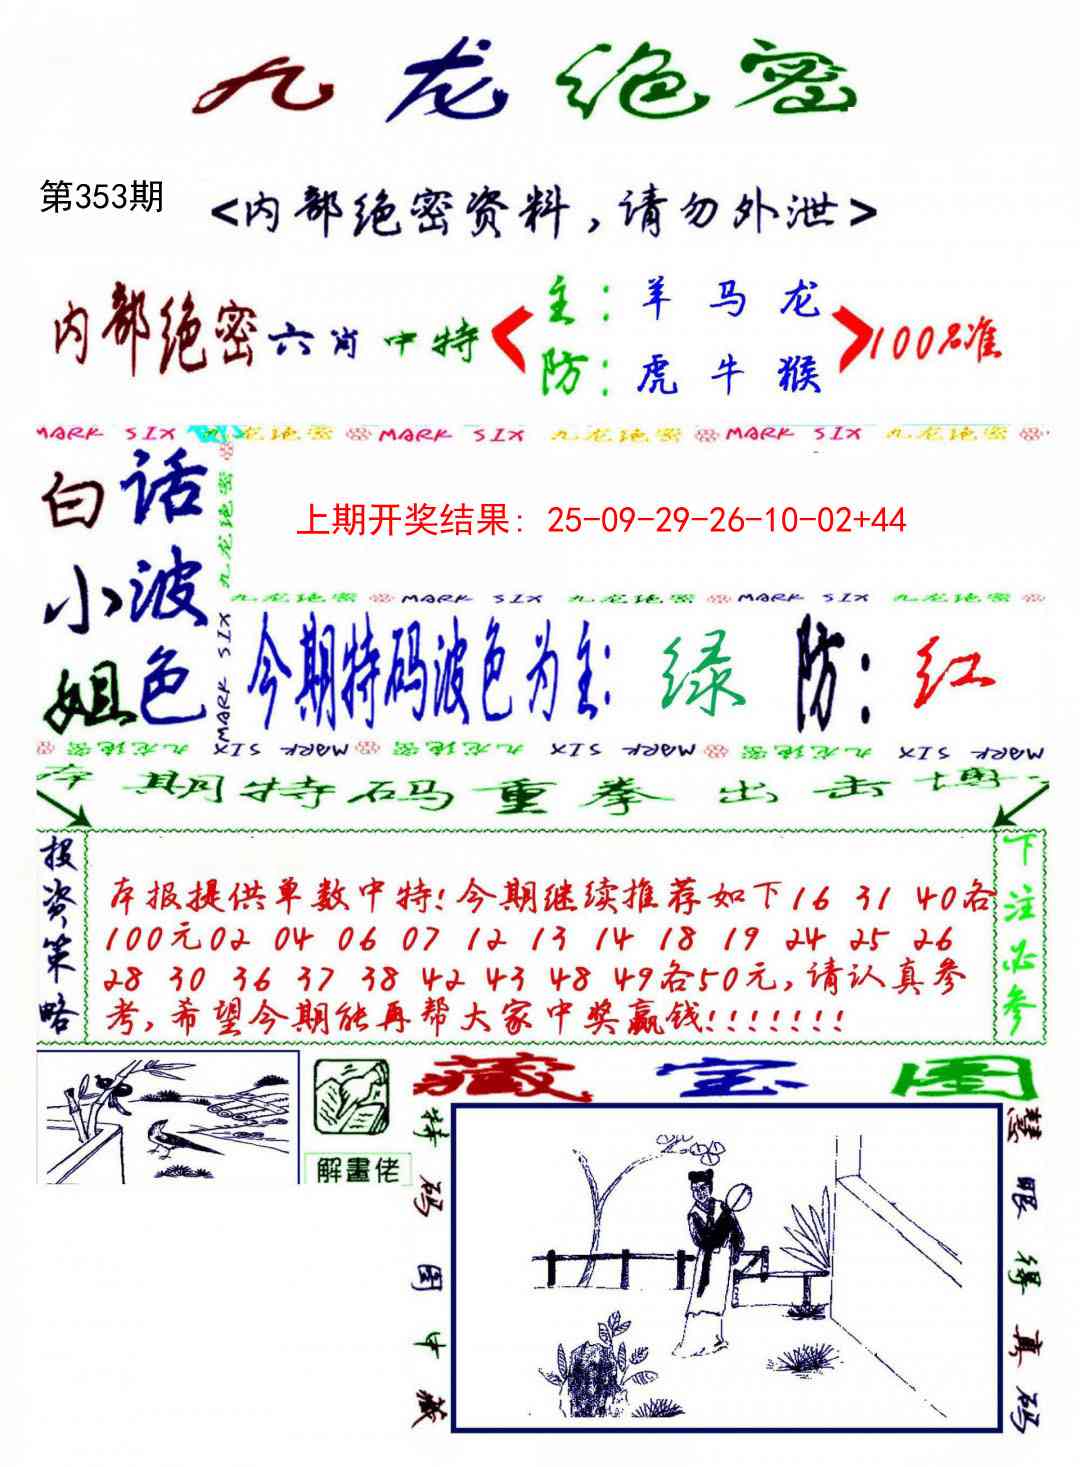 九龙绝密
第353期
<内部绝密资料,请勿外泄>
内部绝密六肖中特
主:羊 马 龙
防:虎 牛 猴
100%准
MARK SIX 九龙绝密 MARK SIX 九龙绝密 MARK SIX 九龙绝密
白小姐
话波色
九龙绝密
MARK SIX
上期开奖结果: 25-09-29-26-10-02+44
九龙绝密 MARK SIX 九龙绝密 MARK SIX 九龙绝密
今期特码波色为主:绿 防:红
九龙绝密 MARK SIX 九龙绝密 MARK SIX 九龙绝密 MARK SIX
本期特码重拳出击博
投资策略
本报提供单数中特!今期继续推荐如下16 31 40各
100元02 04 06 07 12 13 14 18 19 24 25 26
28 30 36 37 38 42 43 48 49各50元,请认真参
考,希望今期能再帮大家中奖赢钱!!!!!!!
下注必参
解畫佬
藏宝图
特码图中藏
慧眼得真码